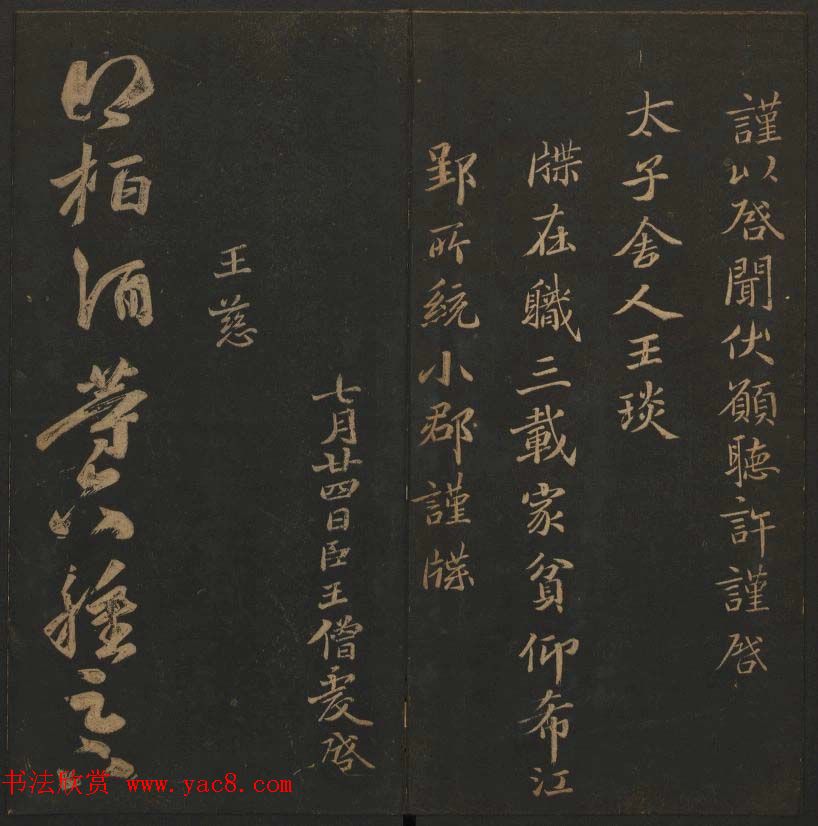 謹以啓聞伏願聽許謹啓
太子舍人王琰
牒在職三載家貧仰布江
郢所統小郡謹牒
七月廿四日臣王僧虔啓
王慈
柏酒等六種之
书法欣赏 www.yac8.com